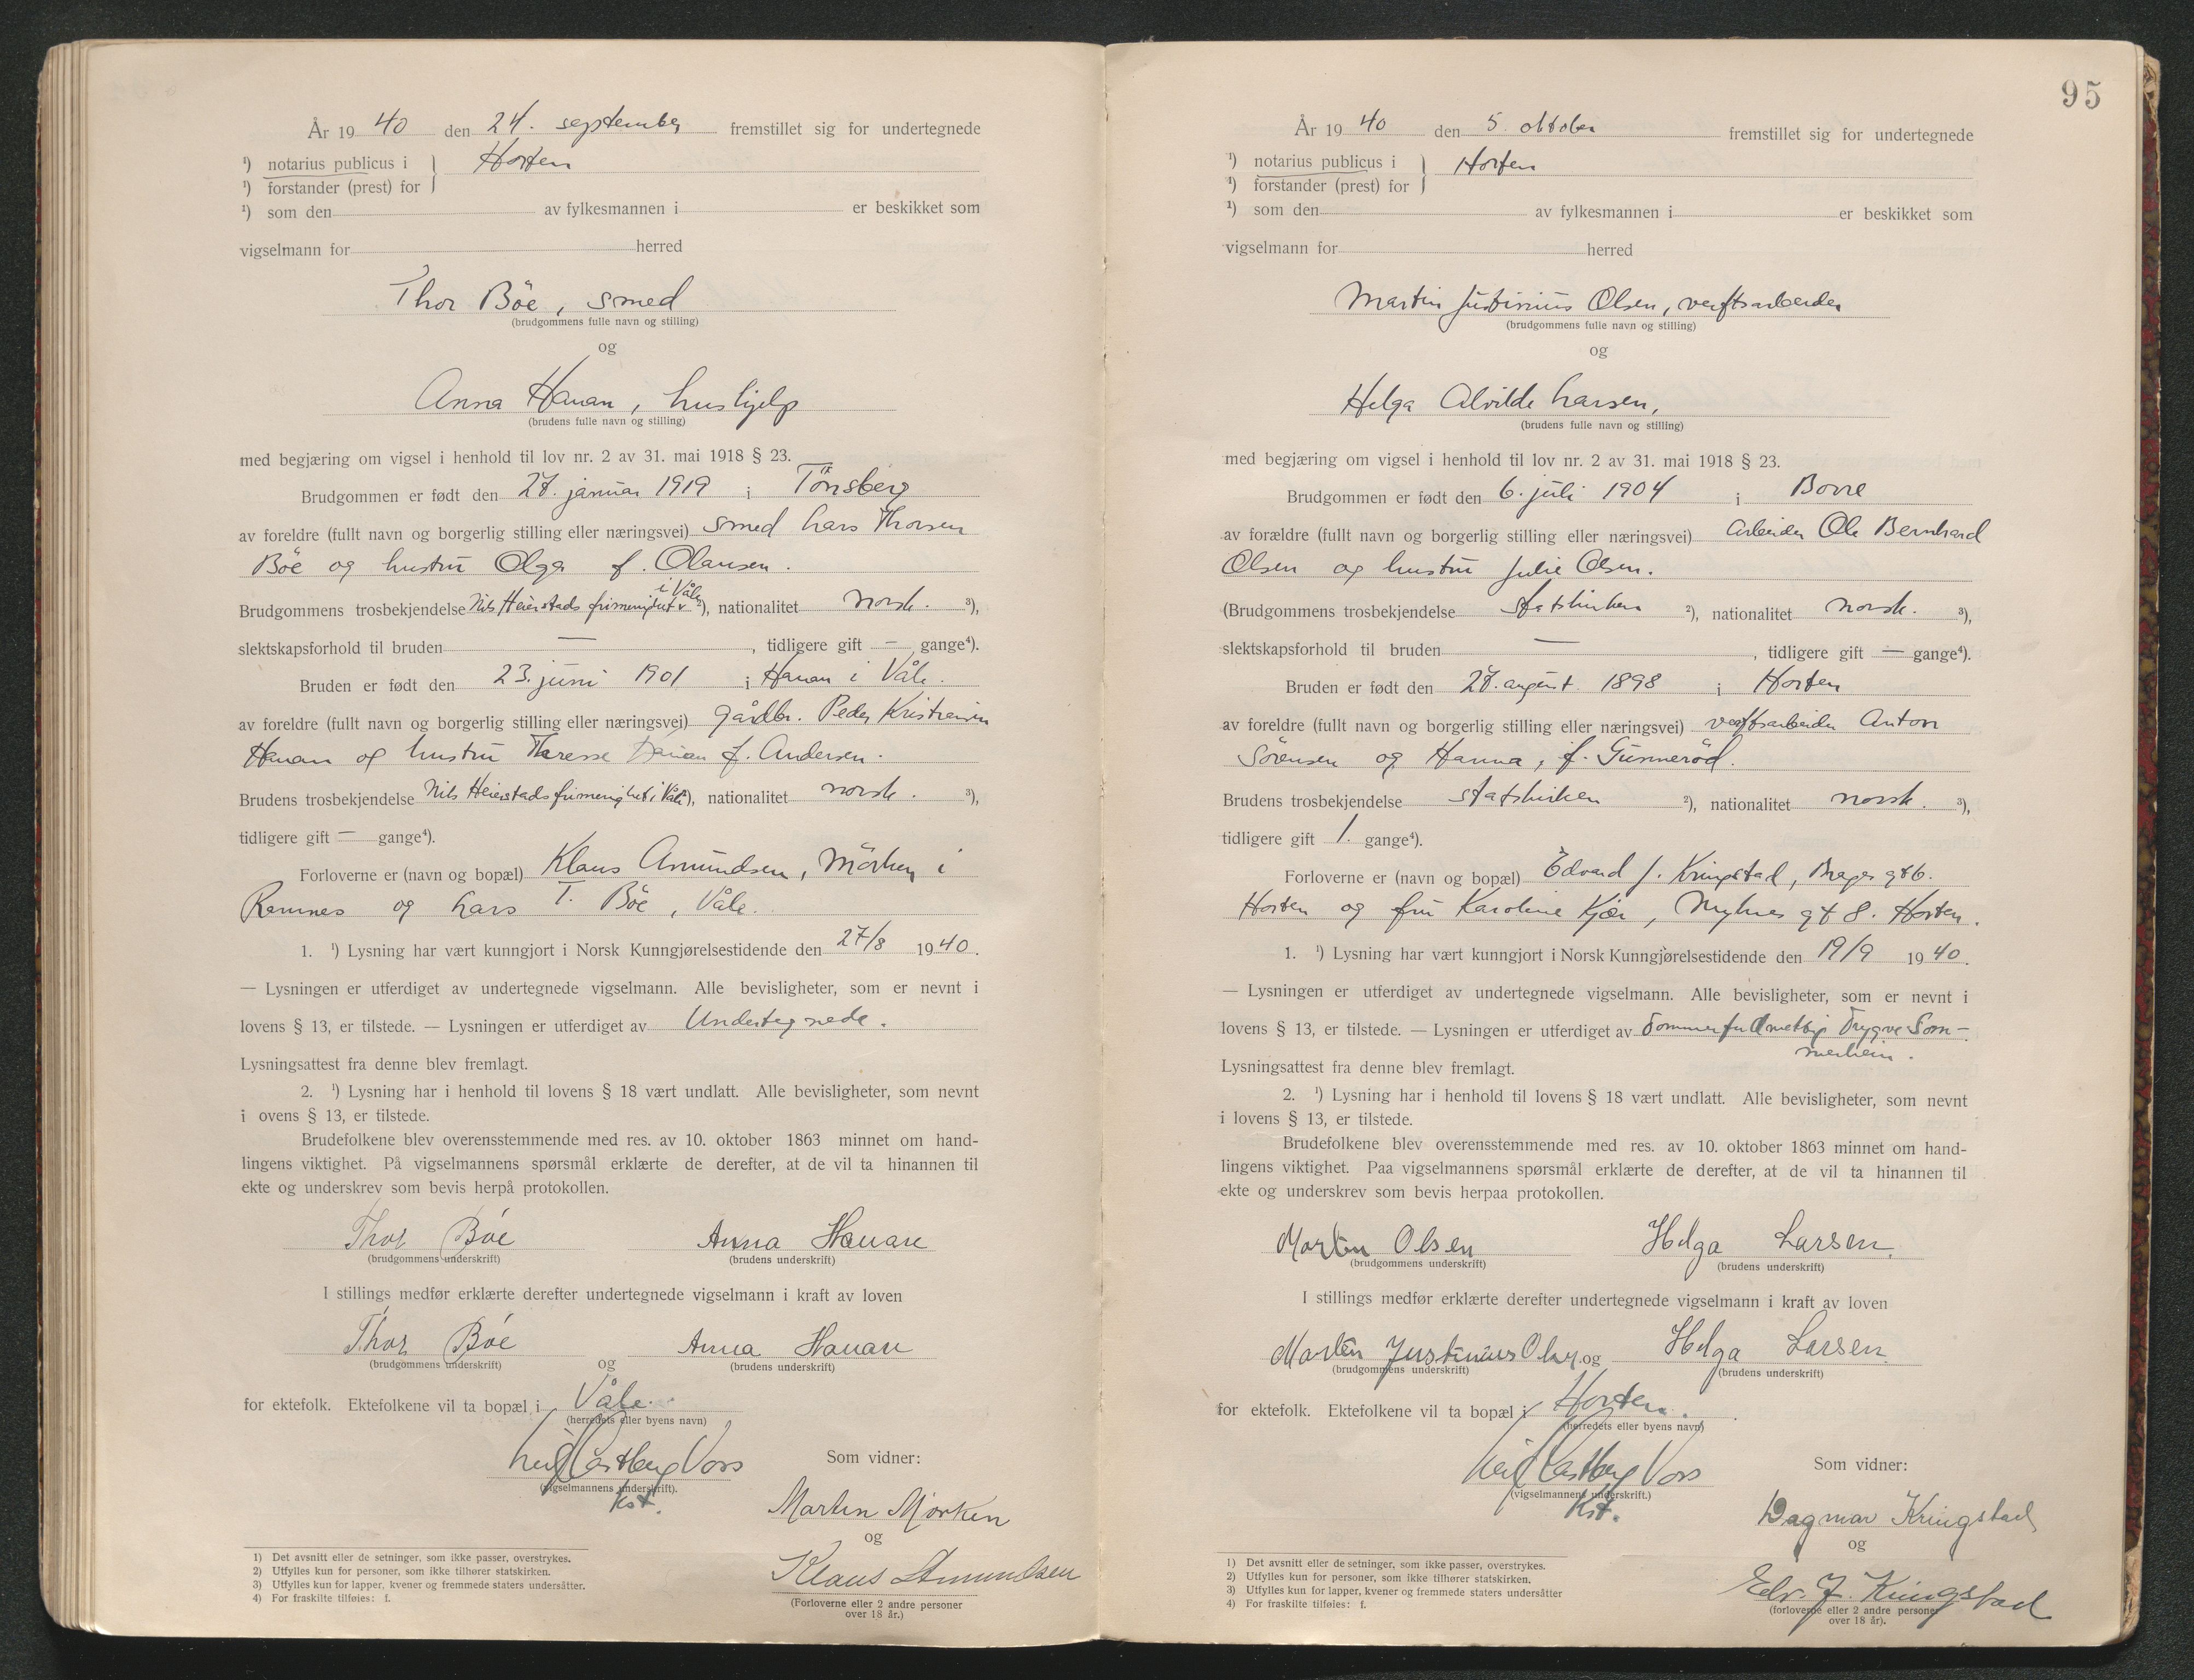 År 1940 den 24. september fremstillet sig for undertegnede
¹) notarius publicus i } Horten
¹) forstander (prest) for
¹) som den av fylkesmannen i er beskikket som
vigselmann for herred
Thor Böe, smed
(brudgommens fulle navn og stilling)
og
Anna Hanan, hushjelp
(brudens fulle navn og stilling)
med begjæring om vigsel i henhold til lov nr. 2 av 31. mai 1918 § 23.
Brudgommen er født den 27. januar 1919 i Tönsberg
av foreldre (fullt navn og borgerlig stilling eller næringsvei) smed Lars Thorsen
Böe og hustru Olga f. Olausen.
i Våle
Brudgommens trosbekjendelse Nils Heierstads frimenighet ²), nationalitet norsk. ³),
slektskapsforhold til bruden — , tidligere gift — gange⁴).
Bruden er født den 23. juni 1901 i Hanan i Våle.
av foreldre (fullt navn og borgerlig stilling eller næringsvei) gårdbr. Peder Kristensen
Hanan og hustru Therese Hanan f. Andersen.
Brudens trosbekjendelse Nils Heierstads frimenighet i Våle ²), nationalitet norsk. ³),
tidligere gift — gange⁴).
Forloverne er (navn og bopæl) Klaus Amundsen, Mörken i
Ramnes og Lars T. Böe, Våle.
1. ¹) Lysning har vært kunngjort i Norsk Kunngjørelsestidende den 27/8 1940.
— Lysningen er utferdiget av undertegnede vigselmann. Alle bevisligheter, som er nevnt i
lovens § 13, er tilstede. — Lysningen er utferdiget av Undertegnede.
Lysningsattest fra denne blev fremlagt.
2. ¹) Lysning har i henhold til lovens § 18 vært undlatt. Alle bevisligheter, som nevnt
i ovens § 13, er tilstede.
Brudefolkene blev overensstemmende med res. av 10. oktober 1863 minnet om hand-
lingens viktighet. På vigselmannens spørsmål erklærte de derefter, at de vil ta hinannen til
ekte og underskrev som bevis herpå protokollen.
Thor Böe Anna Hanan
(brudgommens underskrift) (brudens underskrift)
I stillings medfør erklærte derefter undertegnede vigselmann i kraft av loven
Thor Böe og Anna Hanan
(brudgommens underskrift) (brudens underskrift)
for ektefolk. Ektefolkene vil ta bopæl i Våle.
(herredets eller byens navn)
Leif Castberg Voss
(vigselmannens underskrift).
kst.
Som vidner:
Martin Mörken
og
Klaus Amundsen
(Forloverne eller 2 andre personer
over 18 år.)
1) Det avsnitt eller de setninger, som ikke passer, overstrykes.
2) Utfylles kun for personer, som ikke tilhører statskirken.
3) Utfylles kun for lapper, kvener og fremmede staters undersåtter.
4) For fraskilte tilføies: f.
95
År 1940 den 5. oktober fremstillet sig for undertegnede
¹) notarius publicus i } Horten
¹) forstander (prest) for
¹) som den av fylkesmannen i er beskikket som
vigselmann for herred
Martin Justinius Olsen, verftsarbeider
(brudgommens fulle navn og stilling)
og
Helga Alvilde Larsen,
(brudens fulle navn og stilling)
med begjæring om vigsel i henhold til lov nr. 2 av 31. mai 1918 § 23.
Brudgommen er født den 6. juli 1904 i Borre
av forældre (fullt navn og borgerlig stilling eller næringsvei) arbeider Ole Bernhard
Olsen og hustru Julie Olsen.
(Brudgommens trosbekjendelse statskirken ²), nationalitet norsk. ³),
slektskapsforhold til bruden — , tidligere gift — gange⁴).
Bruden er født den 27. august 1898 i Horten
av foreldre (fullt navn og borgerlig stilling eller næringsvei) verftsarbeider Anton
Sörensen og Hanna, f. Gunneröd.
Brudens trosbekjendelse statskirken ²), nationalitet norsk. ³),
tidligere gift 1. gange⁴).
Forloverne er (navn og bopæl) Edvard J. Kringstad, Brages gt 6.
Horten og fru Karoline Kjær, gt 8. Horten.
1. ¹) Lysning har vært kunngjort i Norsk Kunngjørelsestidende den 19/9 1940.
— Lysningen er utferdiget av undertegnede vigselmann. Alle bevisligheter, som er nevnt i
lovens § 13, er tilstede. — Lysningen er utferdiget av dommerfullmektig Trygve Som-
merhein.
Lysningsattest fra denne blev fremlagt.
2. ¹) Lysning har i henhold til lovens § 18 vært undlatt. Alle bevisligheter, som nevnt
i lovens § 13, er tilstede.
Brudefolkene blev overensstemmende med res. av 10. oktober 1863 minnet om hand-
lingens viktighet. Paa vigselmannens spørsmål erklærte de derefter, at de vil ta hinannen til
ekte og underskrev som bevis herpaa protokollen.
Martin Olsen Helga Larsen.
(brudgommens underskrift) (brudens underskrift)
I stillings medfør erklærte derefter undertegnede vigselmann i kraft av loven
Martin Justinius Olsen og Helga Larsen.
(brudgommens underskrift) (brudens underskrift)
for ektefolk. Ektefolkene vil ta bopæl i Horten.
(herredets eller byens navn)
Leif Castberg Voss
(vigselmannens underskrift.)
Kst.
Som vidner:
Dagmar Kringstad
og
Edv. J. Kringstad
(forloverne eller 2 andre personer
over 18 år).
1) Det avsnitt eller de setninger, som ikke passer, overstrykes.
2) Utfylles kun for personer, som ikke tilhører statskirken.
3) Utfylles kun for lapper, kvener og fremmede staters undersåtter
4) For fraskilte tilføies: f.